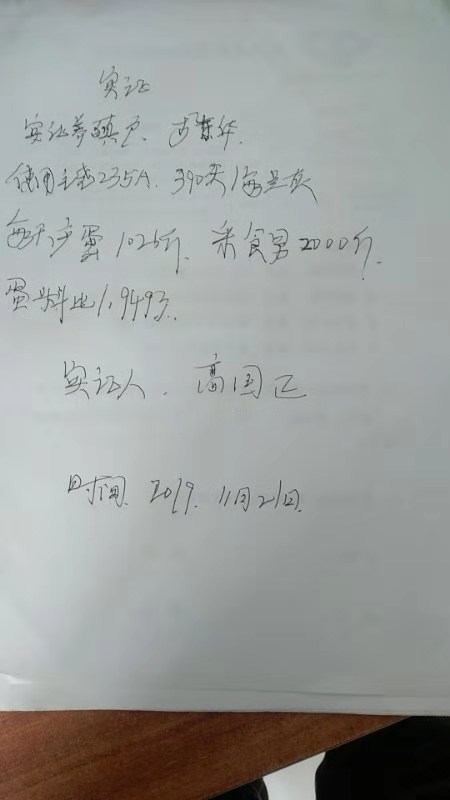 实证
实证养殖户
使用 235A. 390天
每天产蛋1026斤. 采食量2000斤.
蛋料比1.9493.
实证人. 高国正
时间. 2019. 11月21日.